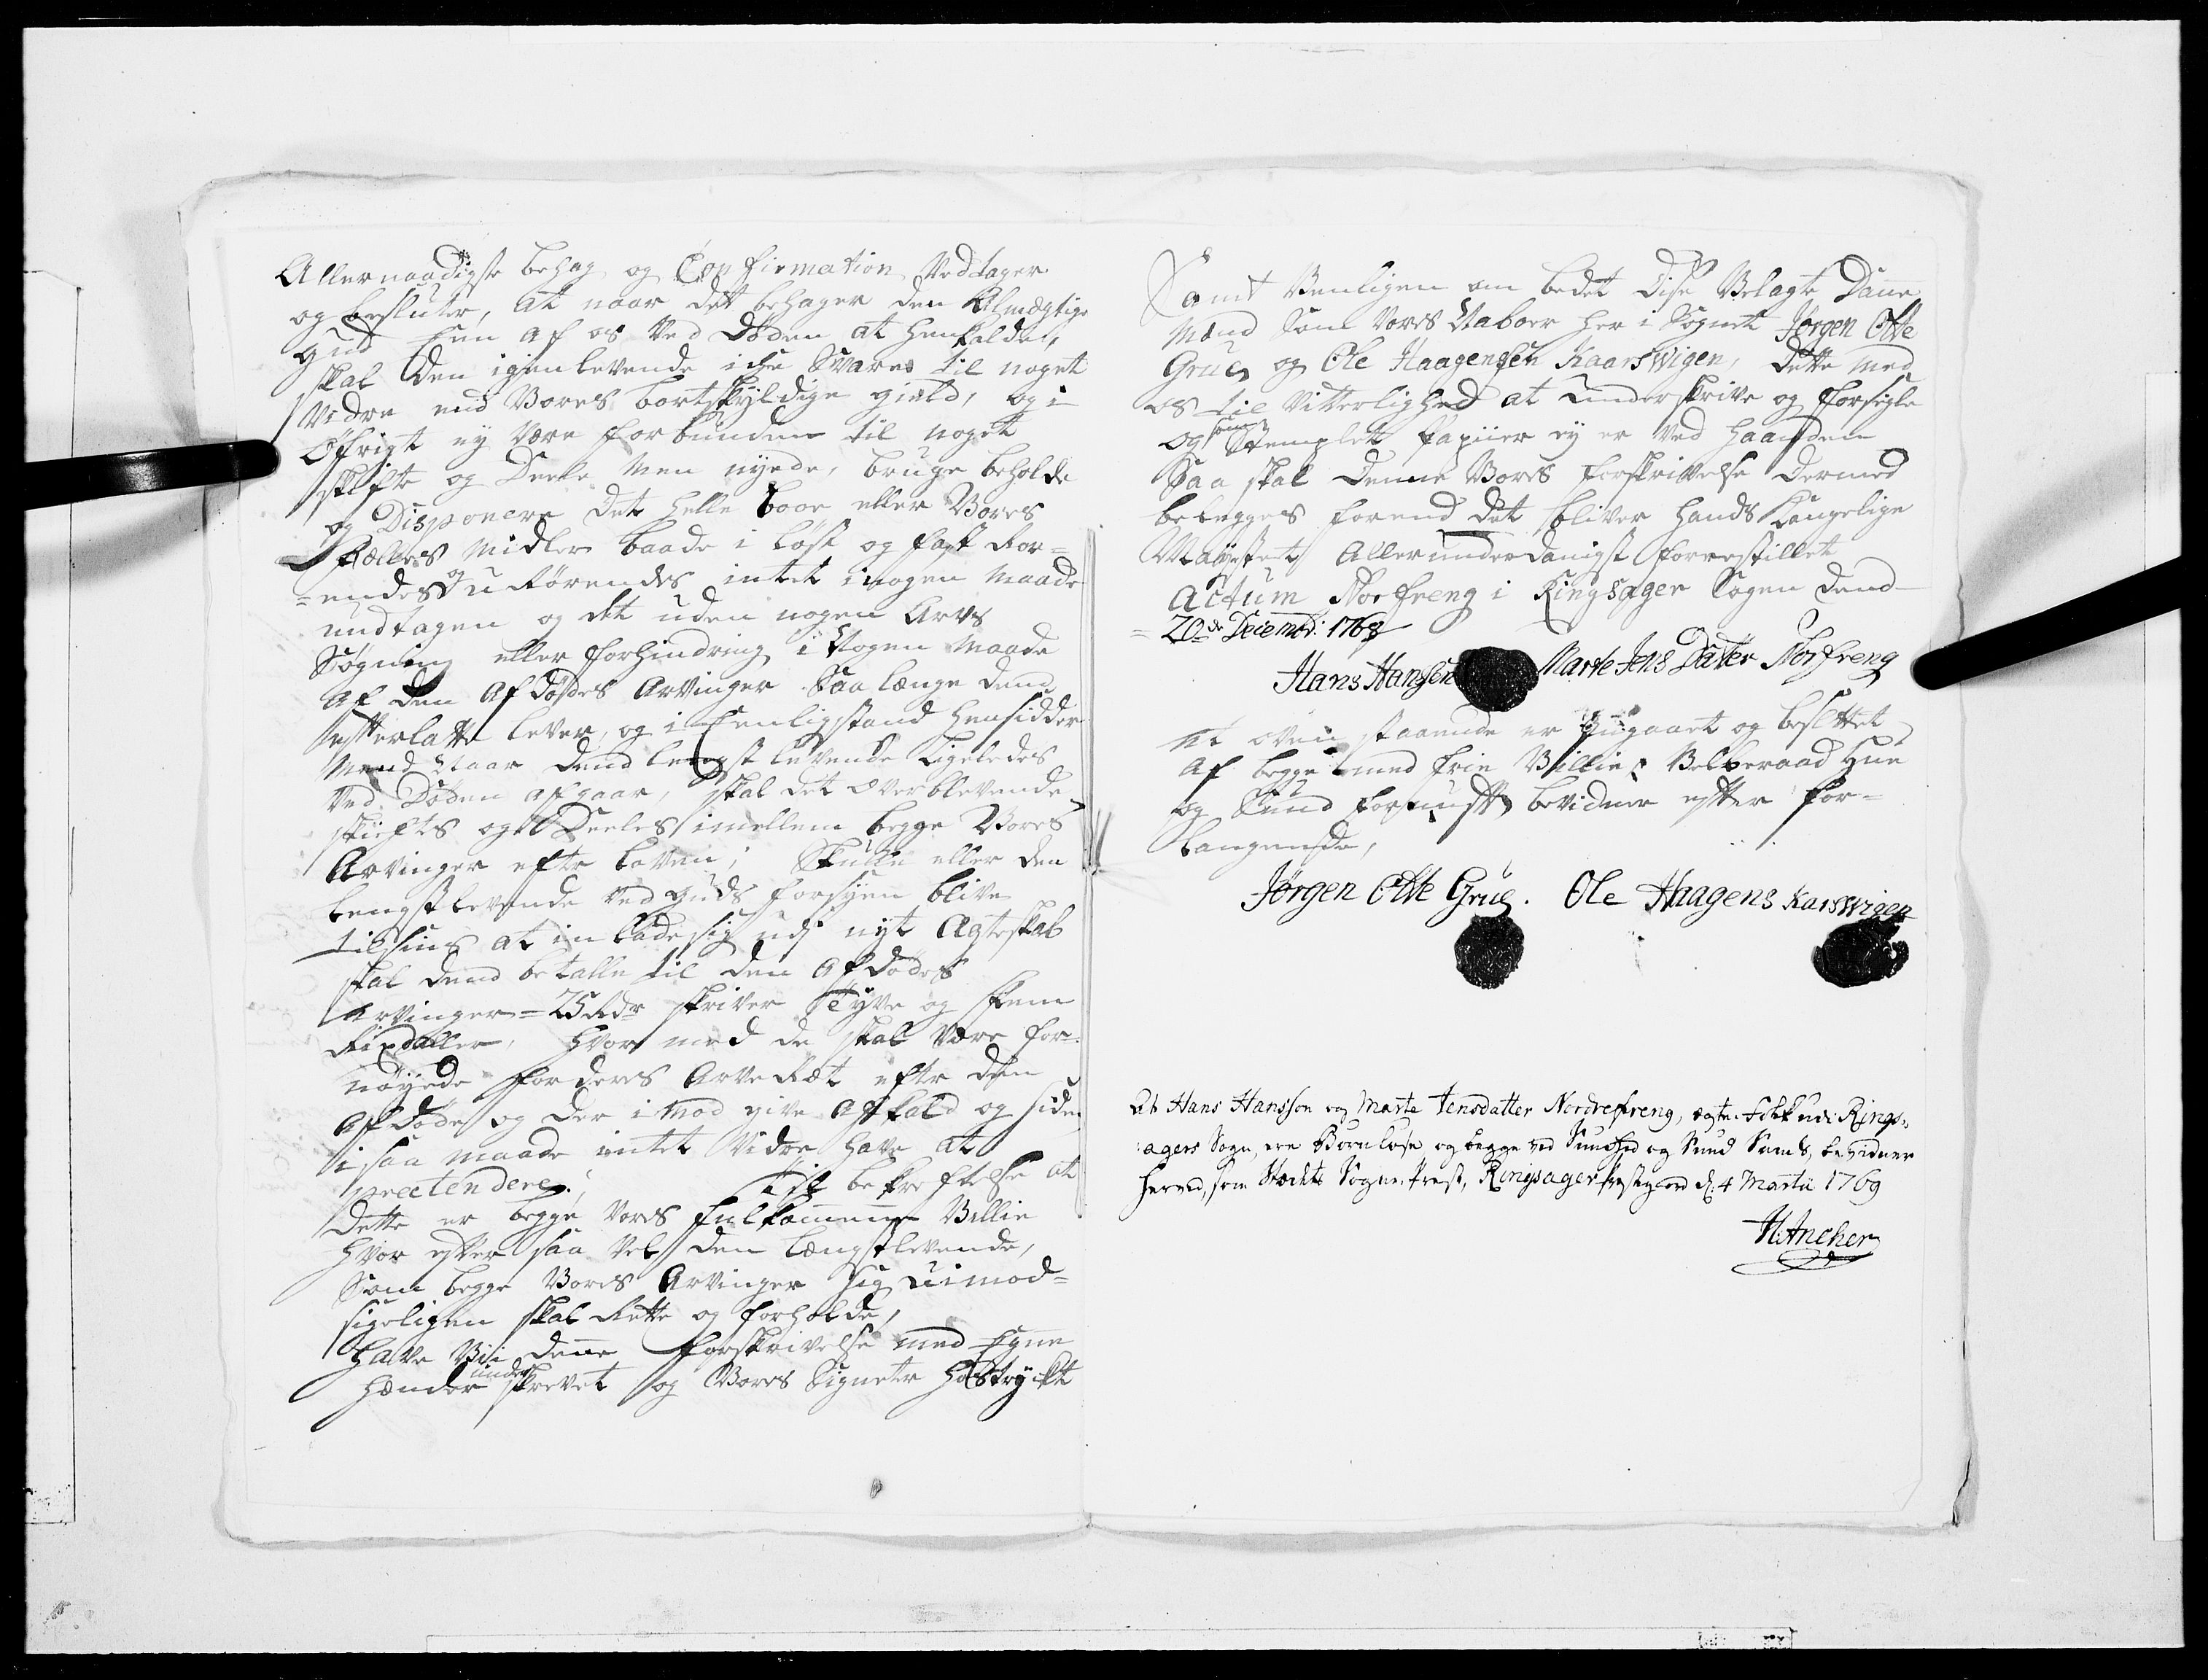 Allernaadigste behag og Confirmation Vedtager
og besluter, at naar det behager den Almægtige
Gud Een af os Ved Døden at henkalde,
skal den igienlevende icke Svare til noget
Vidre end Vores bortskyldige gield, og i
Øfrigt ey Være forbunden til noget
skifte og Deele Men nyede, bruge beholde
og Disponere det helle boe eller Vores
Fælles Midler baade i løst og fast Rør=
=endes og uRørendes intet i nogen Maade
undtagen og det uden nogen Arvs
Søgning eller forhindring i Nogen Maade
Af den Afdødes Arvinger Saa længe dend
efterlatte lever, og i Eenligstand hensidder
Mend Naar dend lengst levende Ligeledes
Ved Døden afgaar, skal det overblevende
skiftes og Deeles imellem begge Vores
Arvinger efter loven; Skulle eller den
lengstlevende ved Guds forsyen blive
tilsins at inlade sig udj nyt Ægteskab
skal dend betalle til den afdødes
Arvinger = 25 Rdr skriver Tyve og Fem
Rixdaller, hvor med de skal Være for=
nøyede for deres ArveRæt efter den
Afdøde og der imod give afkald og siden
i saa maade intet Vidre have at
prætendere; Til bekreftelse at
dette er begge Vores fulkommene Villie
hvor efter saa Vel den længstlevende,
Som begge Vores Arvinger sig uimod=
sigeligen skal Rette og forholde,
Have Vii denne forskrivelse med Egne
Hænder under skrevet og Vores Signeter hostryckt
Samt Venligen om bedet dise Velagte Danne
Mænd Som Vores Naboer her i Sognet Jørgen Otte
Grue og Ole Haagensen Kaarswigen, dette med
os til Vitterlighed at underskrive og forsegle
og som Stemplet Papiir ey er ved haanden
Saa skal denne Vores forskrivelse dermed
belegges forend det bliver hands Kongelige
Mayestet Allerunderdanigst forrestillet
Actum Norfreng i Ringsager Sogen dend
= 20de Decembr: 1768
Hans Hansen Marte Jens Dater Norfreng
At oven staaende er Indgaaet og besluttet
af begge med frie Villie Velberaad Hue
og Sund fornuft bevidner efter for=
langende,
Jørgen Otte Grue. Ole Haagens Karswigen
At Hans Hansson og Marte Jensdatter Nordrefreng, ægte-Folk udi Rings=
agers Sogn, ere Børnløse og begge ved Sundhed og Sund Sands, bevidner
herved, som Stædets Sogne-Præst, Ringsager Præstegaard d: 4 Martii 1769
H: Ancher